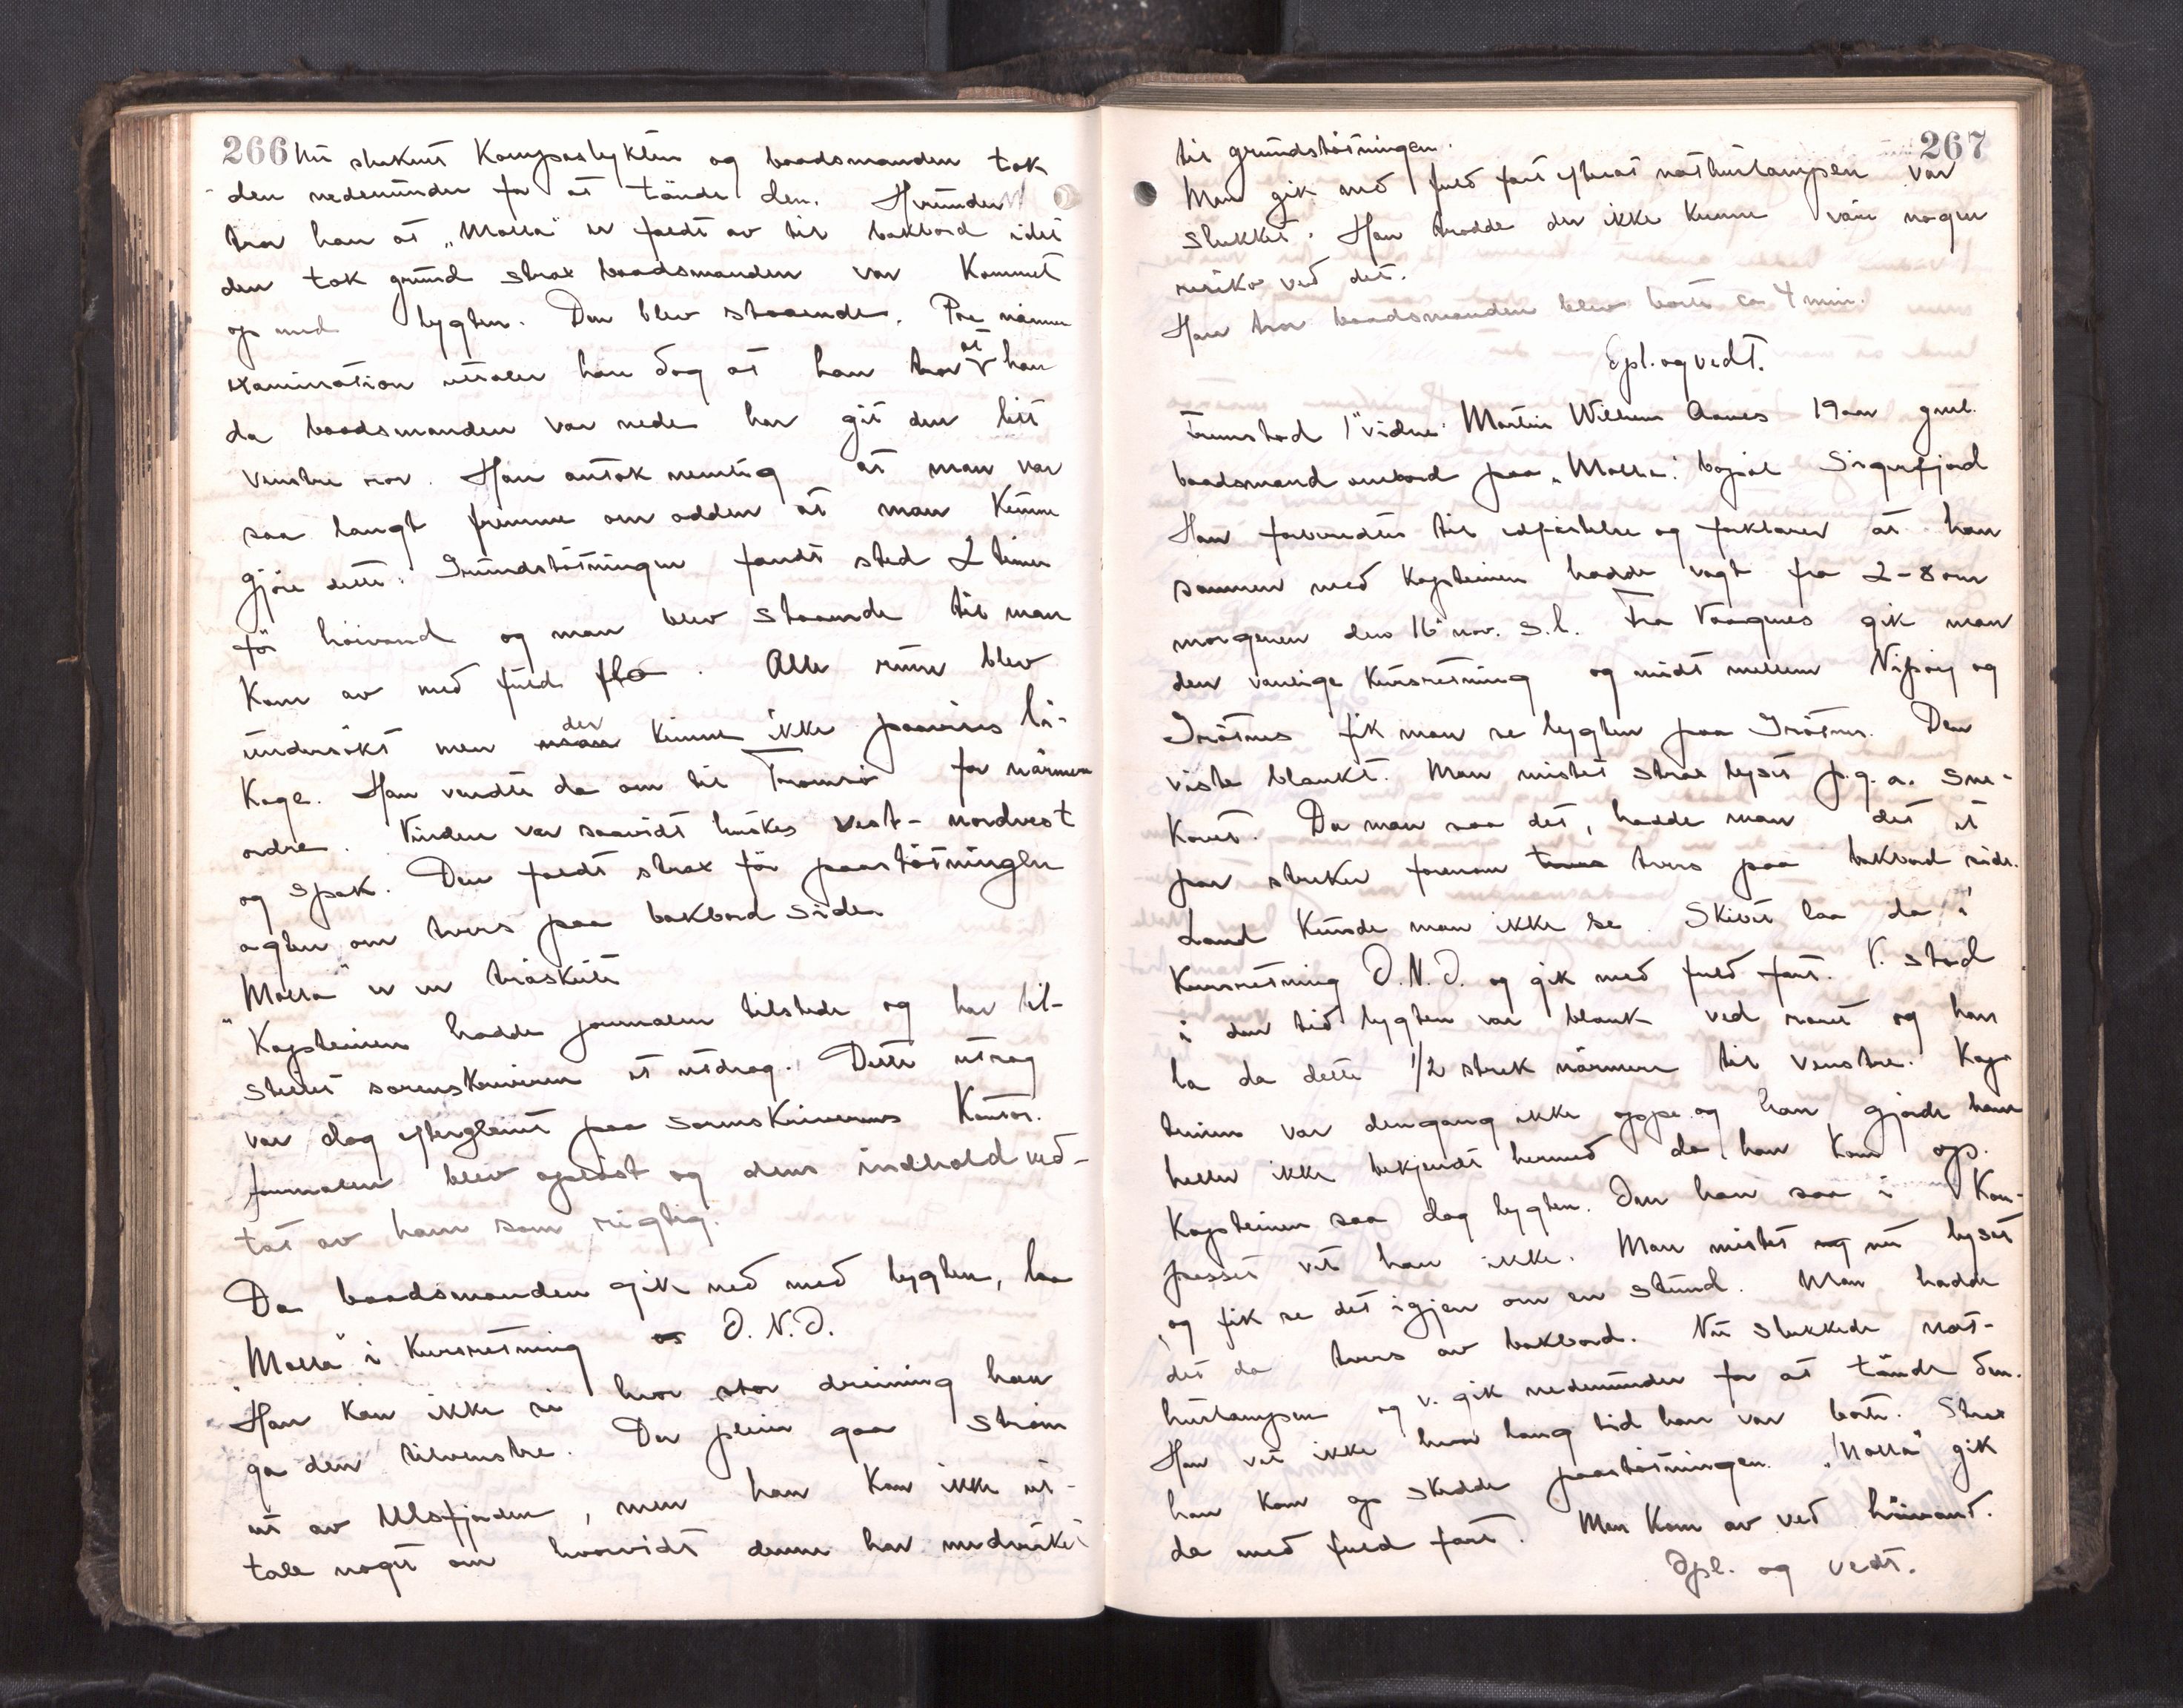 266 Nu sluknet Kompaslykten og baadsmanden tok
den nedenunder for at tænde den. Herunder
tror han at „Malla" er faldt av til bakbord idet
den tok grund strax baadsmanden var kommet
op med lygten. Den blev staaende. Paa nærmere
examination uttaler han dog at han tror at han
da baadsmanden var nede har git den litt
venstre ror. Han antok nemlig at man var
saa langt fremme om odden at man kunne
gjöre dette. Grundstötningen fandt sted 2 timer
för höivand og man blev staaende til man
kom av med fuld flo. Alle rum blev
undersökt men der kunne ikke paavises læ-
kage. Han vendte da om til Tromsö for nærmere
ordre. Vinden var saavidt huskes vest-nordvest
og spak. Den faldt strax för paastötningen
agten om tvers paa bakbord side
„Malla" er en træskute
Kapteinen hadde journalen tilstede og har til-
stillet sorenskriveren et utdrag. Dette utdrag
var dog efterglemt paa sorenskriverens kontor.
Journalen blev oplæst og dens indhold ved-
tat av ham som rigtig.
Da baadsmanden gik ned med lygten, laa
„Malla" i kursretning O.N.O.
Han kan ikke si hvor stor dreining han
ga den tilvenstre. Der pleier gaa ström
ut av Ulsfjorden, men han kan ikke ut-
tale noget om hvorvidt denne har medvirket
267
til grundstötningen.
Man gik med fuld fart efterat nathuslampen var
slukket. Han trodde der ikke kunne være nogen
risiko ved det.
Han tror baadsmanden blev borte ca 4 min.
Opl. og vedt.
Fremstod 1' vidne: Martin Wilhem Aanes 19 aar gml.
baadsmand ombord paa „Malla". bopæl Sigerfjord
Han forberedtes til edfæstelse og forklarer at han
sammen med Kapteinen hadde vagt fra 2-8 om
morgenen den 16' nov. s.l. Fra Vaagnes gik man
den vanlige kursretning og midt mellem Nipöy og
Grötnes fik man se lygten paa Grötnes. Den
viste blankt. Man mistet strax lyset p.g.a. sne-
kavet. Da man saa det, hadde man det et
par streker forenom tvers paa bakbord side.
Land kunde man ikke se. Skibet laa da i
kursretning O.N.O. og gik med fuld fart. V. stod
i den tid lygten var blank ved roret og han
la da dette 1/2 strek nærmere til venstre. Kap-
teinen var dengang ikke oppe og han gjorde ham
heller ikke bekjendt hermed da han kom op.
Kapteinen saa dog lygten. Om han saa i Kom-
passet vet han ikke. Man mistet nu lyset
og fik se det igjen om en stund. Man hadde
det da tvers av bakbord. Nu slukkede nat-
huslampen og v. gik nedenunder for at tænde den.
Han vet ikke hvor lang tid han var borte. Strax
han kom op skedde paastötningen. „Malla" gik
da med fuld fart. Man kom av ved höivand.
Opl. og vedt.